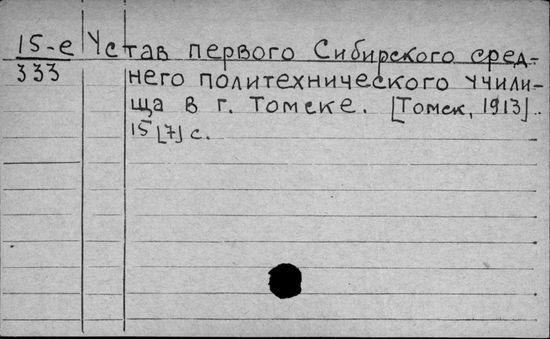 15-е Устав первого Сибирского сред-
333 него политехнического учили-
ща в г. Томске. [Томск, 1913]..
15[7] с.